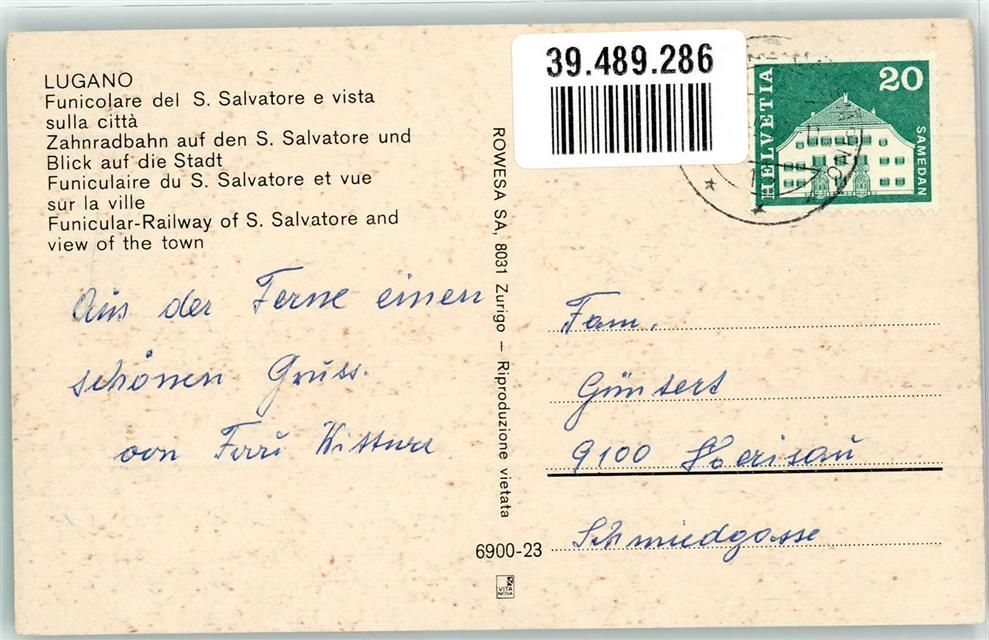 LUGANO
Funicolare del S. Salvatore e vista
sulla città
Zahnradbahn auf den S. Salvatore und
Blick auf die Stadt
Funiculaire du S. Salvatore et vue
sur la ville
Funicular-Railway of S. Salvatore and
view of the town
Aus der Ferne einen
schönen Gruss.
von Frau
ROWESA SA, 8031 Zurigo – Riproduzione vietata
6900-23
VITA
NOVA
39.489.286
HELVETIA
20
SAMEDAN
Fam.
Güntert
9100 Herisau
Schmiedgasse